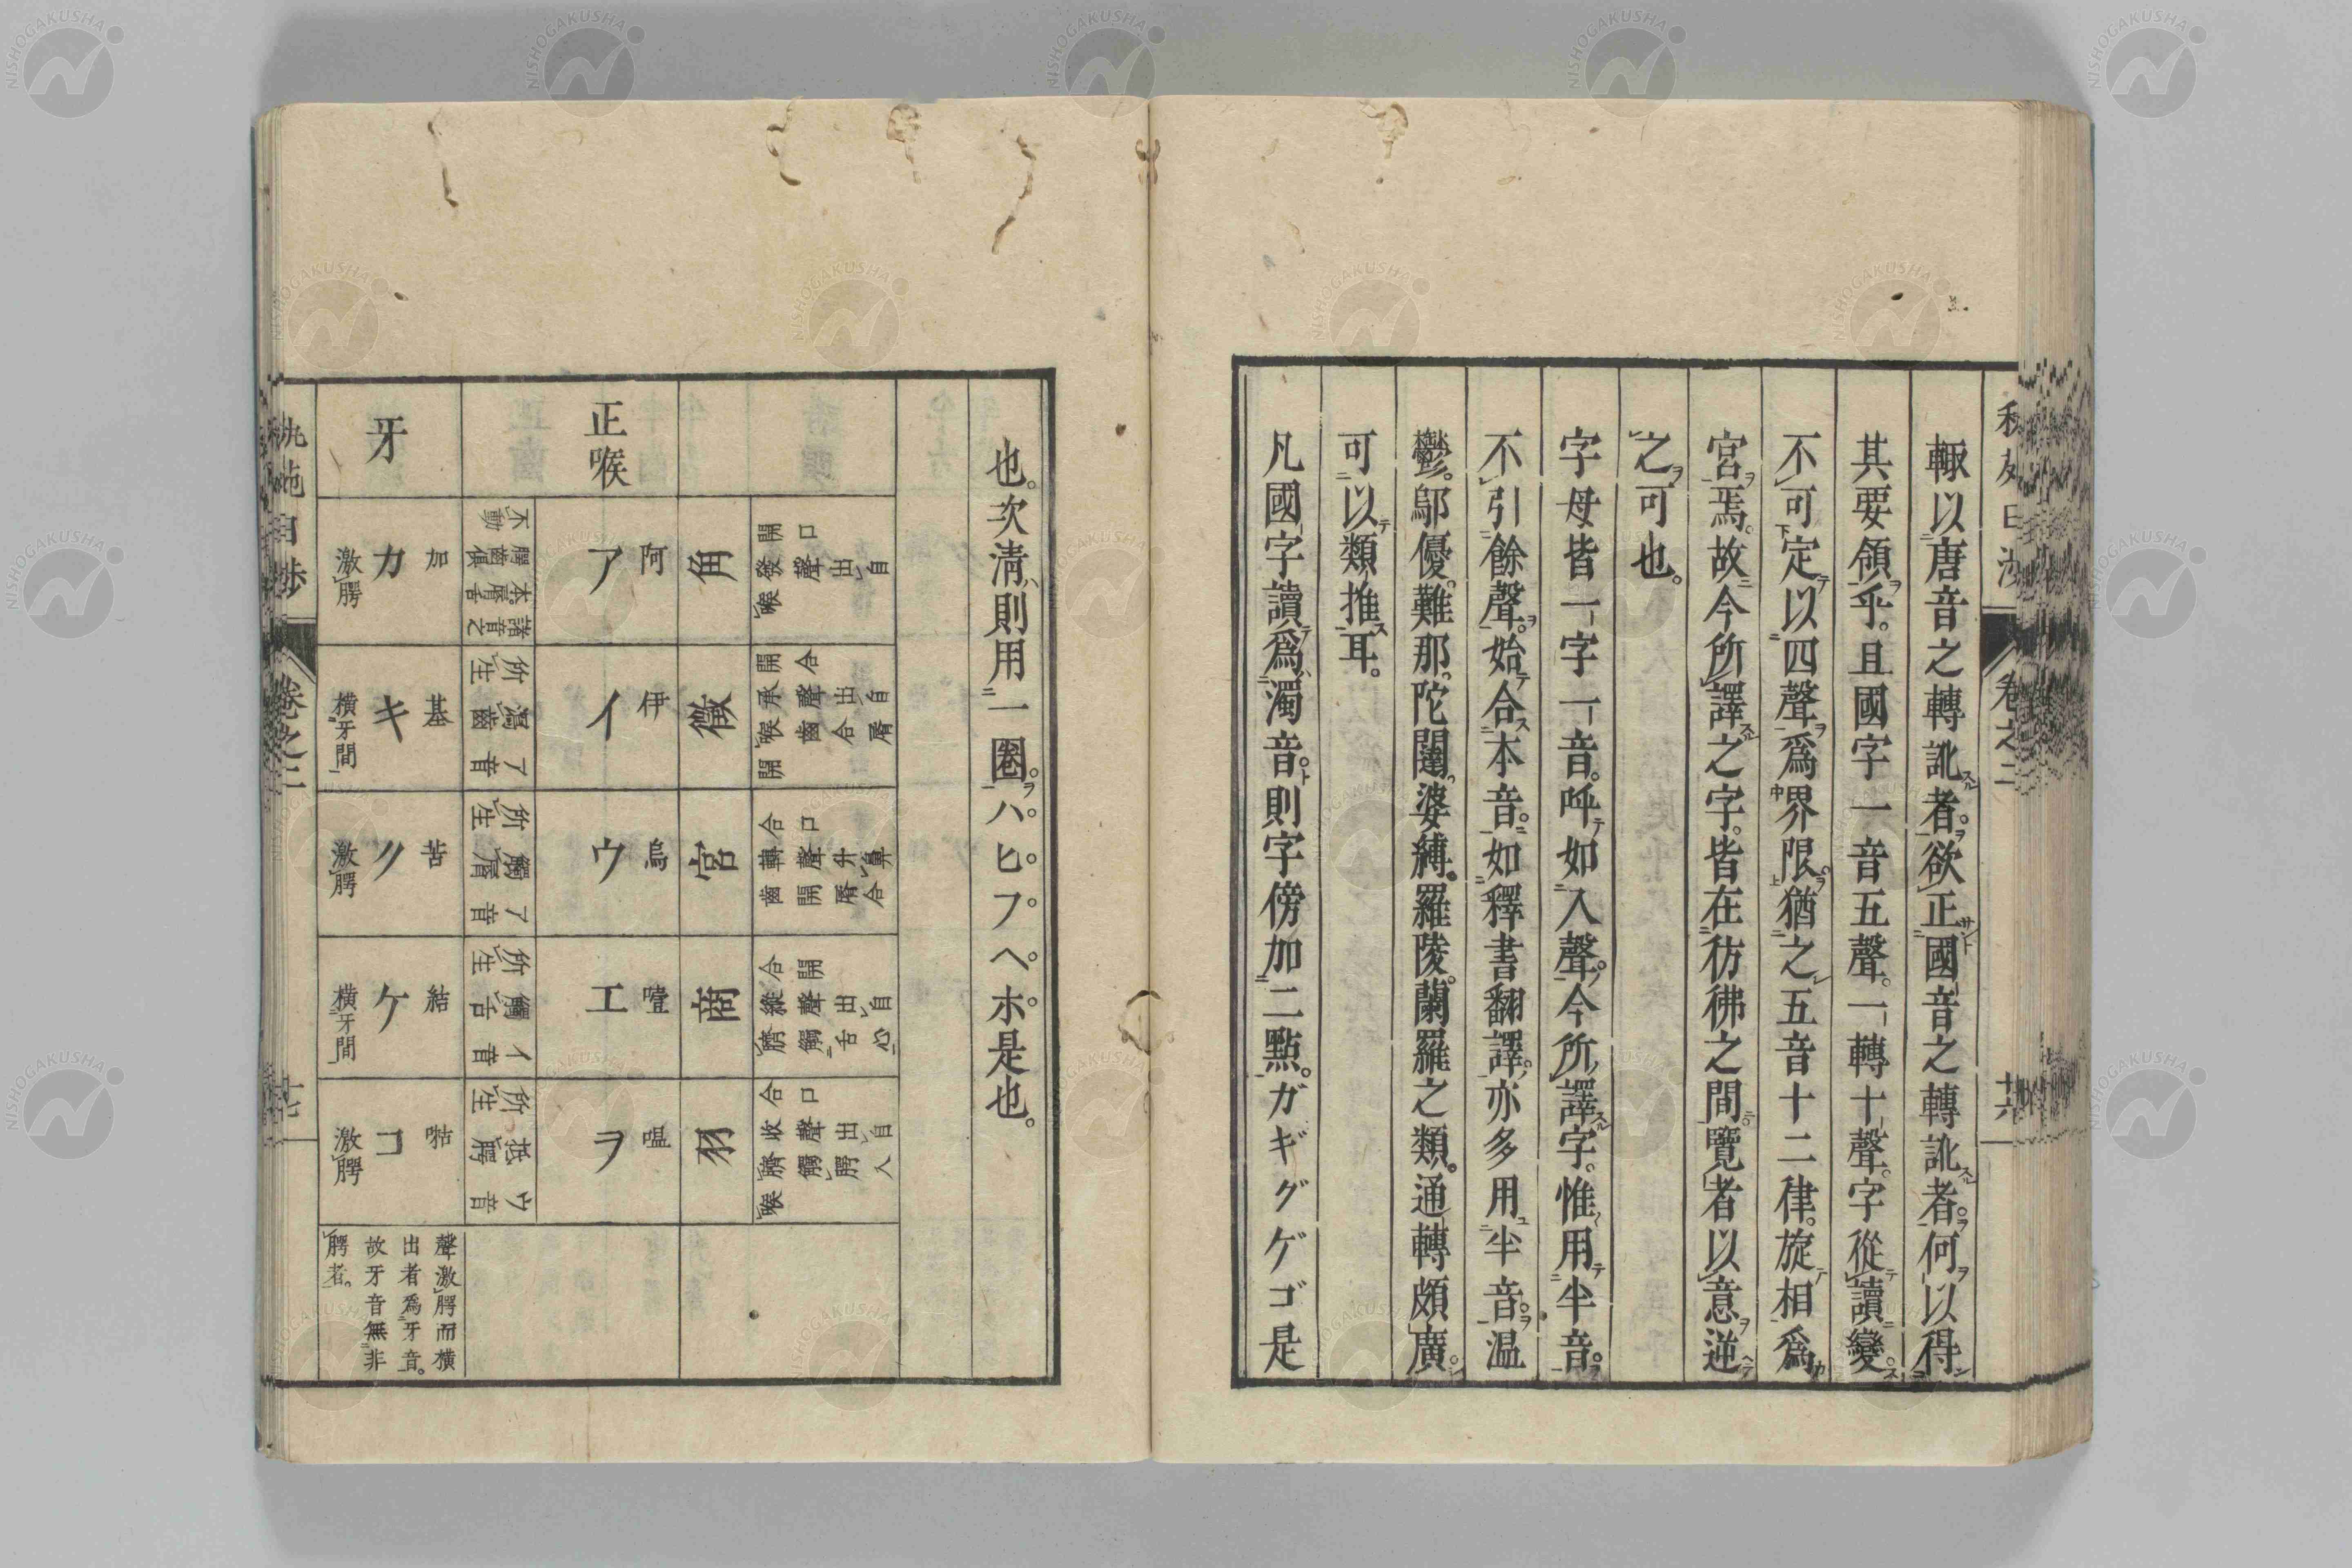 卷之二
輙以唐音之轉訛者。欲正國音之轉訛者。何以得
其要領乎。且國字一音五聲。一轉十聲。字從讀變。
不可定以四聲爲界限。猶之五音十二律。旋相爲
宮焉。故今所譯之字。皆在彷彿之間。覽者以意逆
之可也。
字母皆一字一音。呼如入聲。今所譯字。惟用半音。
不引餘聲。始合本音。如釋書翻譯。亦多用半音。温
鬱。鄔優。難那。陀闥。婆縛。羅陵。蘭羅之類。通轉頗廣。
可以類推耳。
凡國字讀爲濁音。則字傍加二點。ガギグゲゴ是
也。次淸則用一圈。ハ゜ヒ゜フ゜ヘ゜ホ゜是也。
口開 聲發 出自喉
合開 聲承 出自喉 齒合脣開
口合 聲轉 升鼻 齒開脣合
開合 聲縱 出自心 臍觸舌
口合 聲收 出自臍 觸腭入喉
角 徵 宮 商 羽
正喉
阿 ア
伊 イ
烏 ウ
噎 エ
嗢 ヲ
諸音之本。脣舌腭齒俱不動
ア音瀉齒所生
ア音觸脣所生
イ音觸舌所生
ウ音抵腭所生
牙
加 カ 激腭
基 キ 橫牙間
苦 ク 激腭
結 ケ 橫牙間
コ 激腭
聲激腭而橫
出者爲牙音。
故牙音無非
腭者。
卷之二
十七
NISHOGAKUSHA